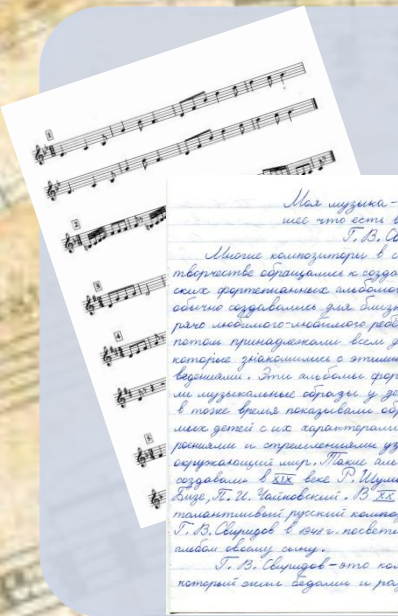 Моя музыка -
шее что есть в
Г. В. Св
Многие композиторы в с
творчестве обращались к созда
ских фортепианных альбомов
обычно создавались для близк
рячо любимого-любимого ребё
потом принадлежали всем д
которые знакомились с этими
ведениями. Эти альбомы фор
ли музыкальные образы у де
в тоже время показывали об
мых детей с их характерами
роениями и стремлениями уз
окружающий мир. Такие аль
создавали в XIX веке Р. Шум
Бизе, П. И. Чайковский. В XX
талантливый русский композ
Г. В. Свиридов в 1948 г. посвяти
альбом своему сыну.
Г. В. Свиридов - это ком
который жил бедами и ра